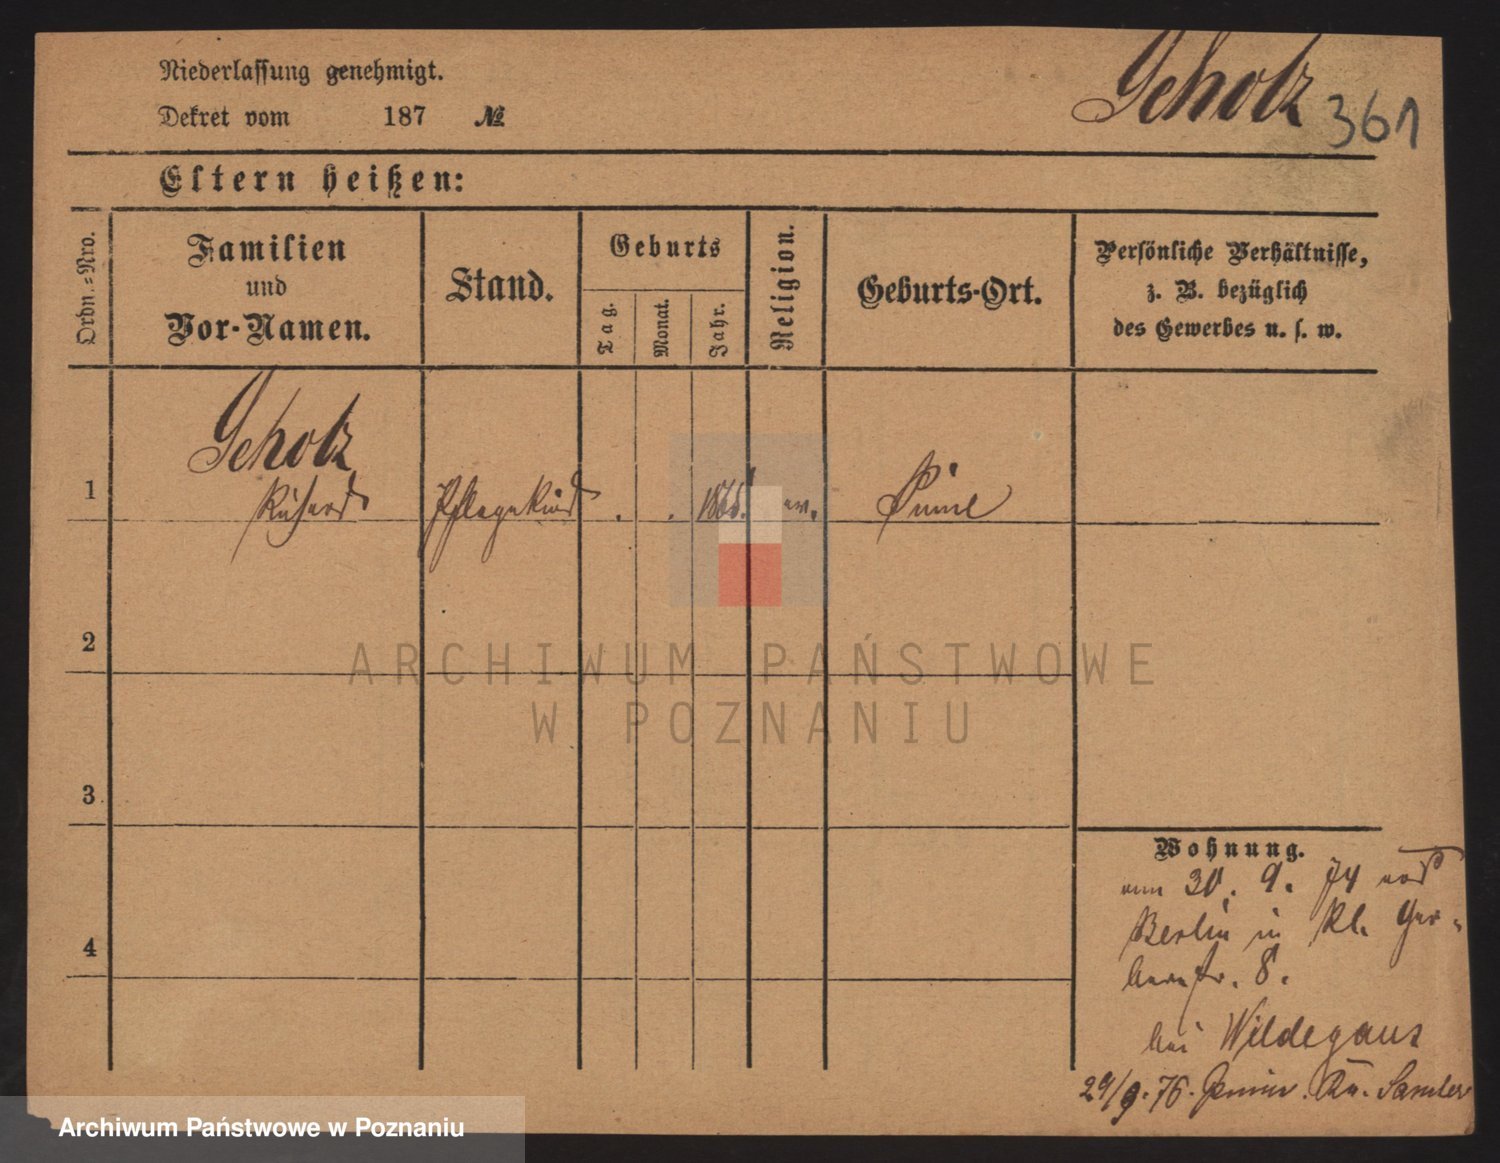 Niederlassung genehmigt.
Dekret vom 187 №
Scholz 361
Eltern heißen:
Ordn.-Nro.
Familien
und
Vor-Namen.
Stand.
Geburts
Tag.
Monat.
Jahr.
Religion.
Geburts-Ort.
Persönliche Verhältnisse,
z. B. bezüglich
des Gewerbes u. s. w.
Scholz
1 Richard Pflegekind . . ev. Pinne
2
3
4
Wohnung.
30. 9. 74
Berlin in Kl. Ger-
berstr. 8.
bei Wildegans
29/9. 76. Samter
ARCHIWUM PAŃSTWOWE
W POZNANIU
Archiwum Państwowe w Poznaniu